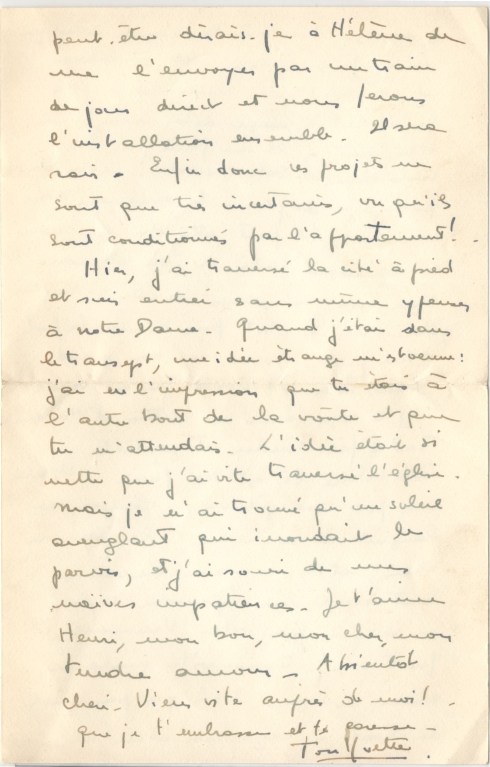 peut-être dirais-je à Hélène de
me l'envoyer par un train
de jour direct et nous ferons
l'installation ensemble. Il sera
ravi. Enfin donc ces projets ne
sont que très incertains, vu qu'ils
sont conditionnés par l'appartement!
Hier, j'ai traversé la cité à pied
et suis entrée sans même y penser
à Notre Dame. Quand j'étais dans
le transept, une idée étrange m'est venue:
j'ai eu l'impression que tu étais à
l'autre bout de la voûte et que
tu m'attendais. L'idée était si
nette que j'ai vite traversé l'église.
Mais je n'ai trouvé qu'un soleil
aveuglant qui inondait le
parvis, et j'ai souri de mes
naïves impatiences. Je t'aime
Henri, mon bon, mon cher, mon
tendre amour. A bientôt
cheri. Viens vite auprès de moi!
que je t'embrasse et te caresse.
Ton Yvette.